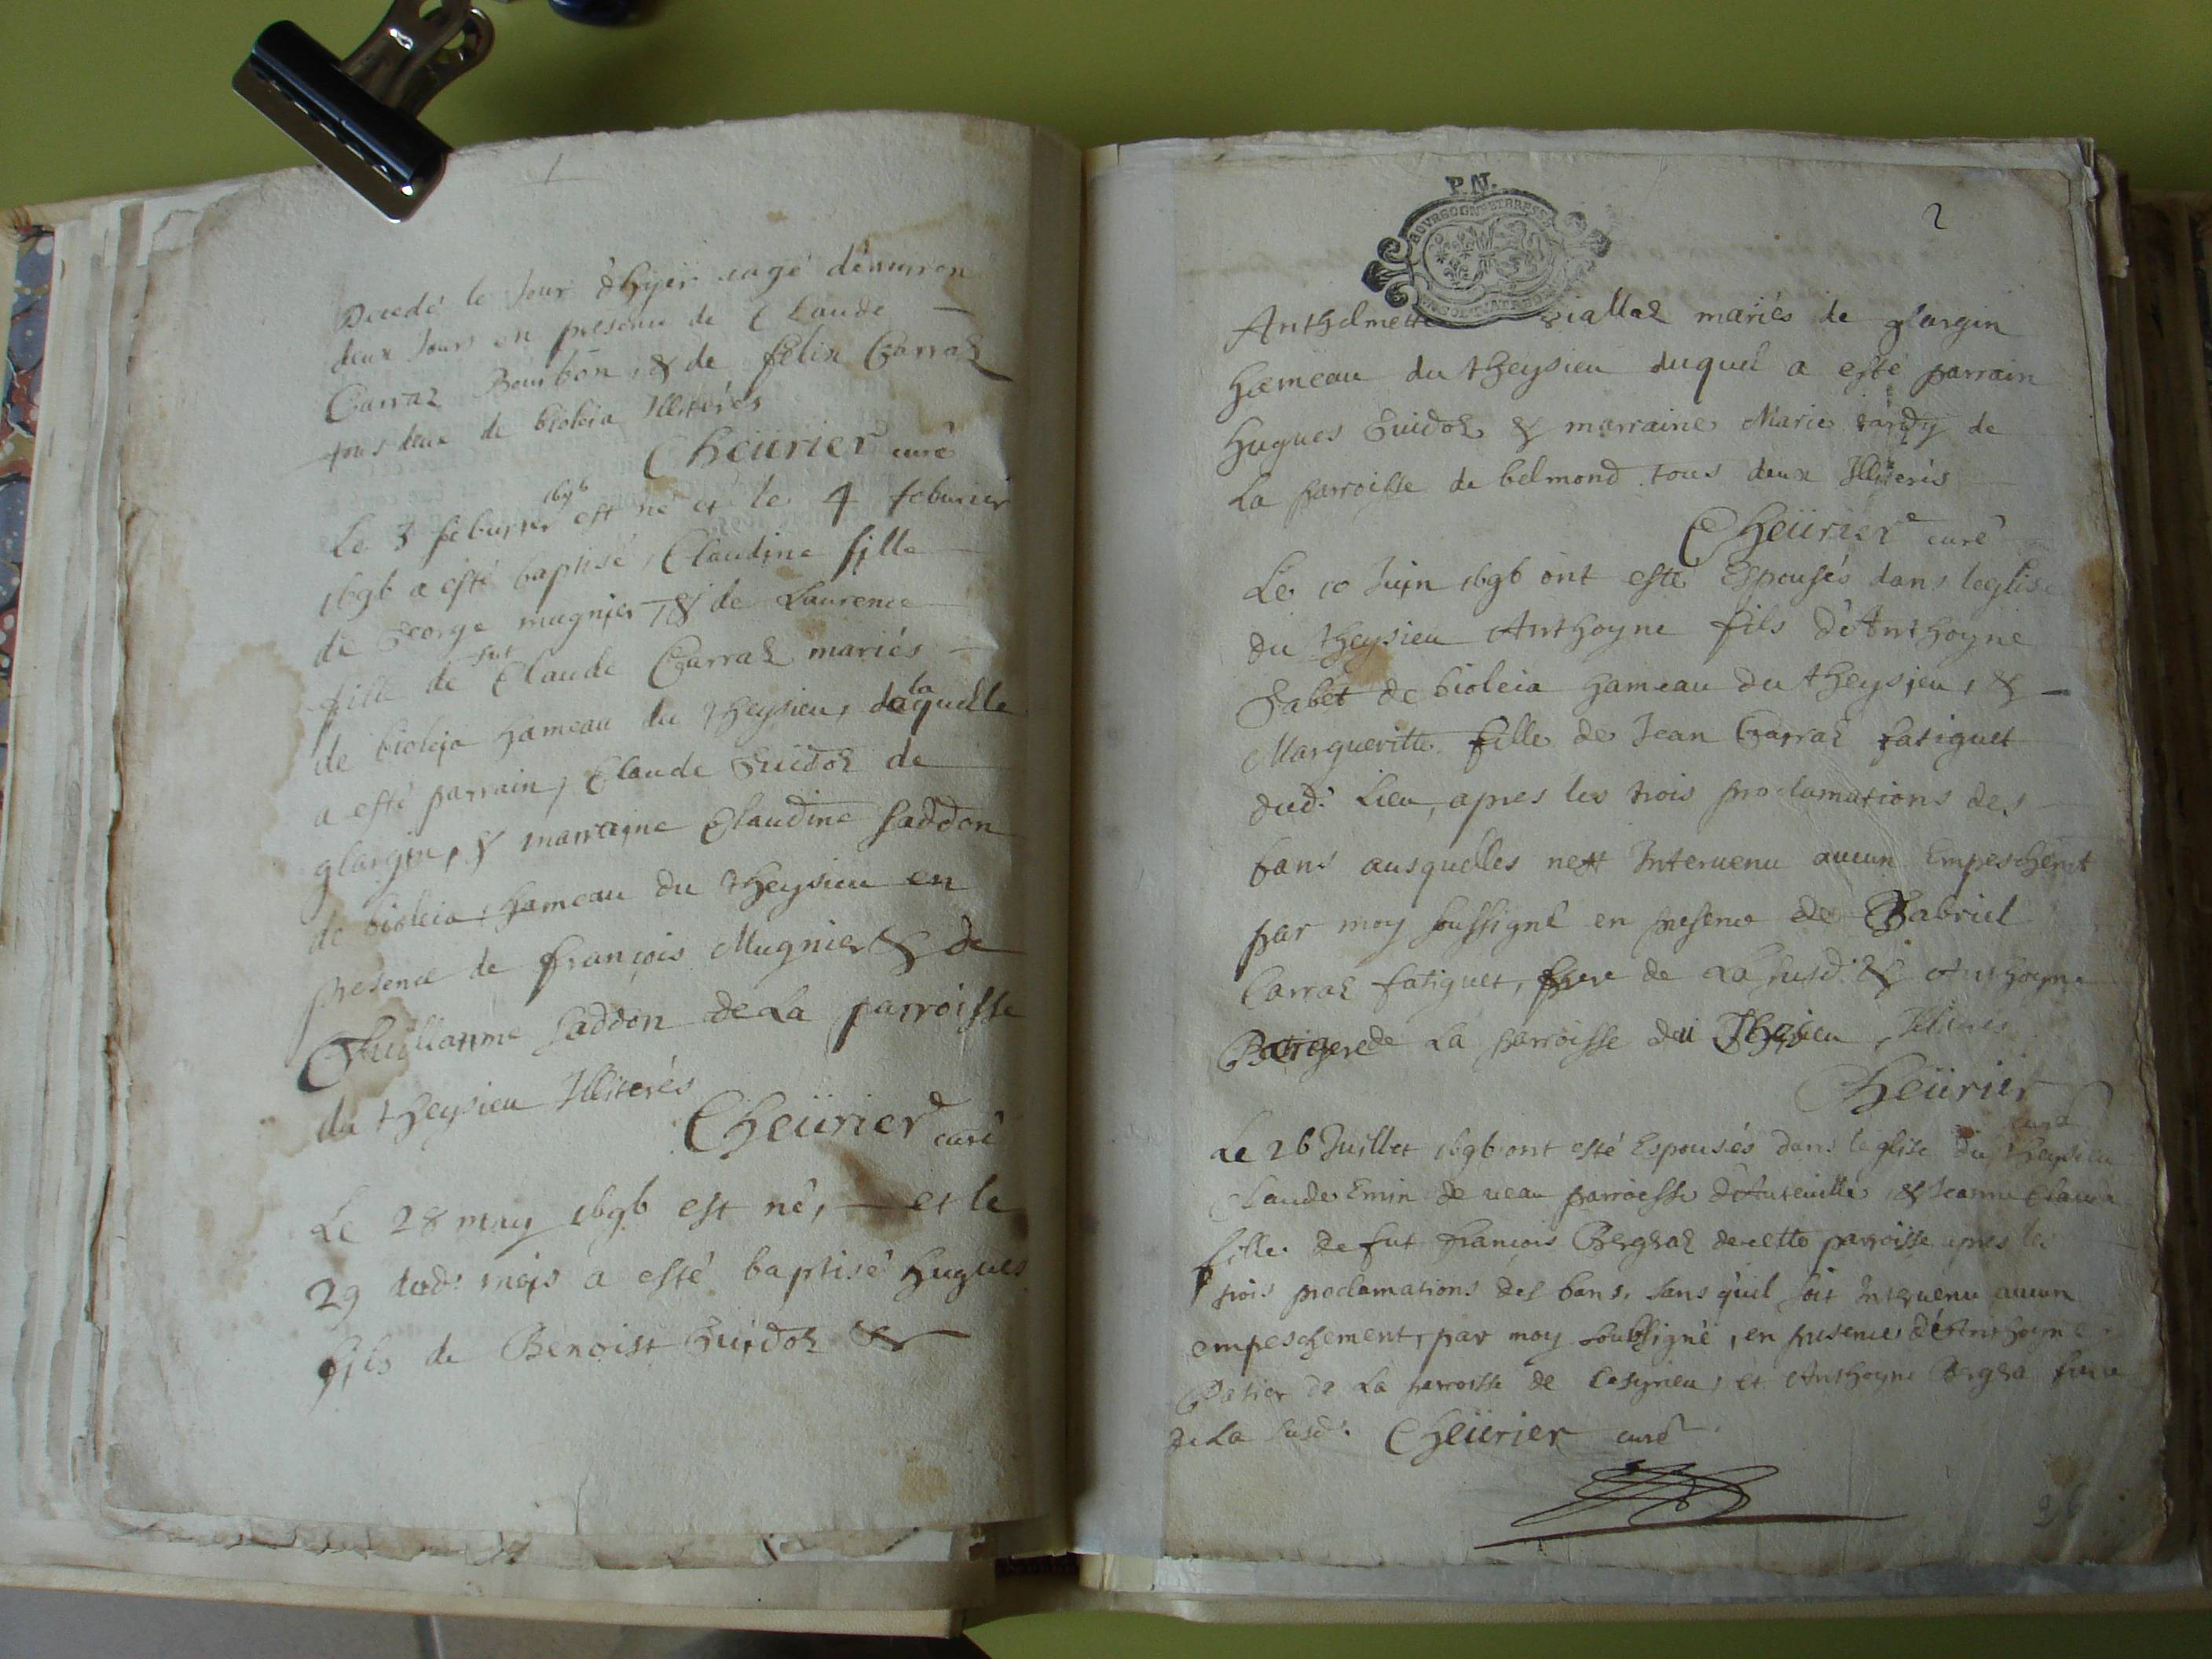 Decedé le Jour d'hyer eagé d'environ
deux Jours en presence de Claude
Carraz Bourbon, & de felix Carraz
tous deux de bioleia Illiterés
Cheürier curé
Le 3 feburier 1696 est né et le 4 feburier
1696 a esté baptisé, Claudine fille
de George mugnier, & de Laurence
fille de fut Claude Carraz mariés
de bioleja hameau du theysieu, de laquelle
a esté parrain, Claude Guidoz de
glargin, & marraine Claudine Saddon
de bioleia, hameau du theysieu en
presence de françois Mugnier & de
Guillaume Saddon de La parroisse
du theysieu Illiterés
Cheürier curé
Le 28 may 1696 est né, et le
29 dud: mois a esté baptisé hugues
fils de Benoist Guidoz &
P.N.
2
Anthelmette mariés de glargin
hameau du theysieu duquel a esté parrain
hugues Guidoz & marraine Marie tardy de
La parroisse de belmond tous deux Illiterés
Cheürier curé
Le 10 Juin 1696 ont esté Espousés dans leglise
du theysieu Anthoyne fils d'Anthoyne
Sabet de bioleia hameau du theysieu, &
Margueritte fille de Jean Carraz fatiguet
dud: Lieu, apres les trois proclamations des
bans ausquelles nest Intervenu aucun Empeschemt
par moy soussigné en presence de Gabriel
Carraz fatiguet, frere de La susd: & Anthoyne
de La parroisse du Illiterés
Cheürier
curé
Le 26 Juillet 1696 ont esté Espousés dans leglise du theysieu
Claude Emin de ueau parroisse d'Auteuille, & Jeanne Clauda
fille de fut françois Bergraz de cette parroisse apres les
trois proclamations des bans, sans qu'il soit Intervenu aucun
empeschement, par moy soubsigné, en presence d'Anthoyne
de La parroisse de et Anthoyne frere
de La susd: Cheürier curé